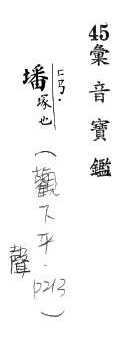 45彙音寶鑑
墦塚也(觀下平·p213)
聲